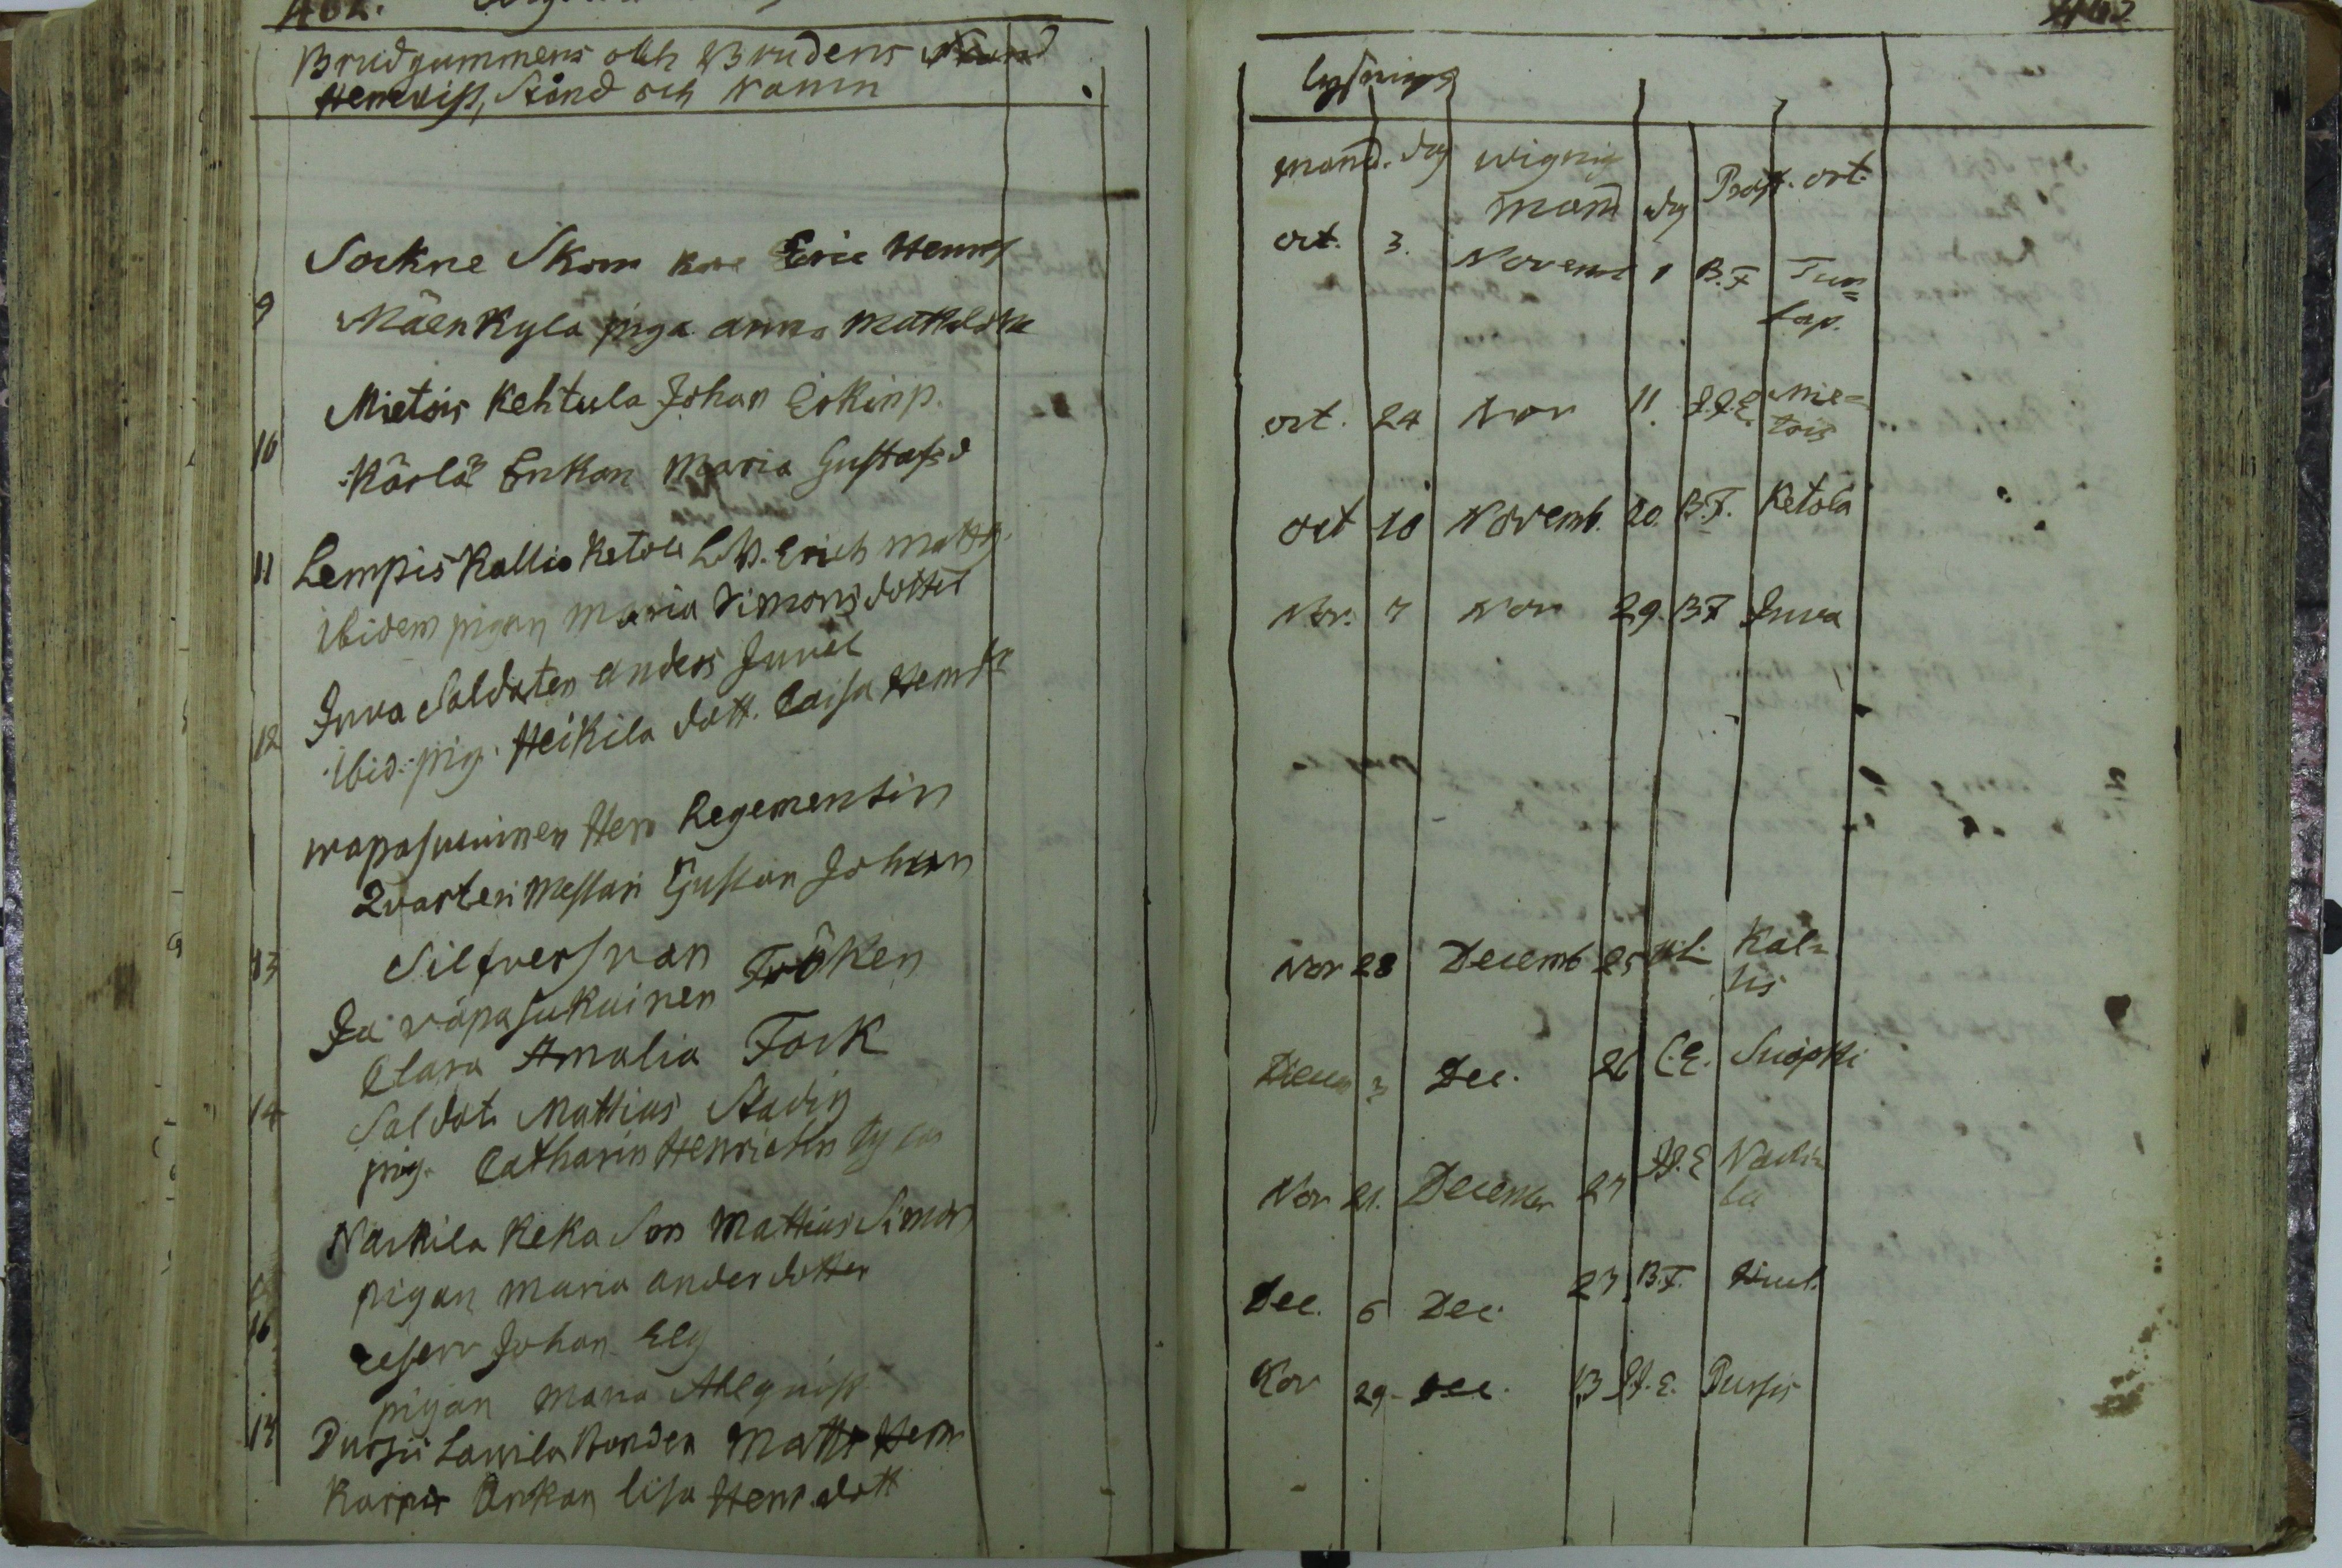 402.
Brudgummens och Brudens
Hemvist, Stånd och Namn
Sockne Skom Eric Henrs
9
Mäenkyla piga anna Mattsdotr
Mietois Kehtula Johan Erikinp.
10
Kärlä Enkan Maria Gustafsd
11 Lempis Kallio Ketola Erich Matts.
ibidem pigan Maria Simonsdotter
12 Juva Soldaten anders Juvel
ibid. pig. Heikila dott. Caisa Henr
wapasuuinen Herr Regementin
Qvarteri Mestari Gustav Johan
13 Silfversvan
Ja vapasukuinen Fröken
Clara Amalia Fock
14 Soldat. Mattias Stadig
pig. Catharin Henrichsn
Narkila Keka Son Mattias Simon
pigan Maria andersdotter
16 reserv Johan Elg
pigan Maria Ahlqvist
17 Pursis Lawila Bonden Matts Henr
Karpis Enkan Lisa Henr. dott
lysnings
månd. dag wigning
månd dag Präst. ort.
oct. 3. Novemb 1 B.F Tur=
lap.
oct. 24 Nov 11. J.E Mie=
tois
oct 10 Novemb. 20. B.F. Ketola
Nov. 7 Nov 29. B F Juva
Nov 28 Decemb 25 Kal=
lis
Decem 3 Dec. 26 C.E. Suopki
Nov 21. December 27 H.E Narki=
la
Dec. 6 Dec. 27 B.F.
Nov 29- Dec. 13 H.E. Pursis